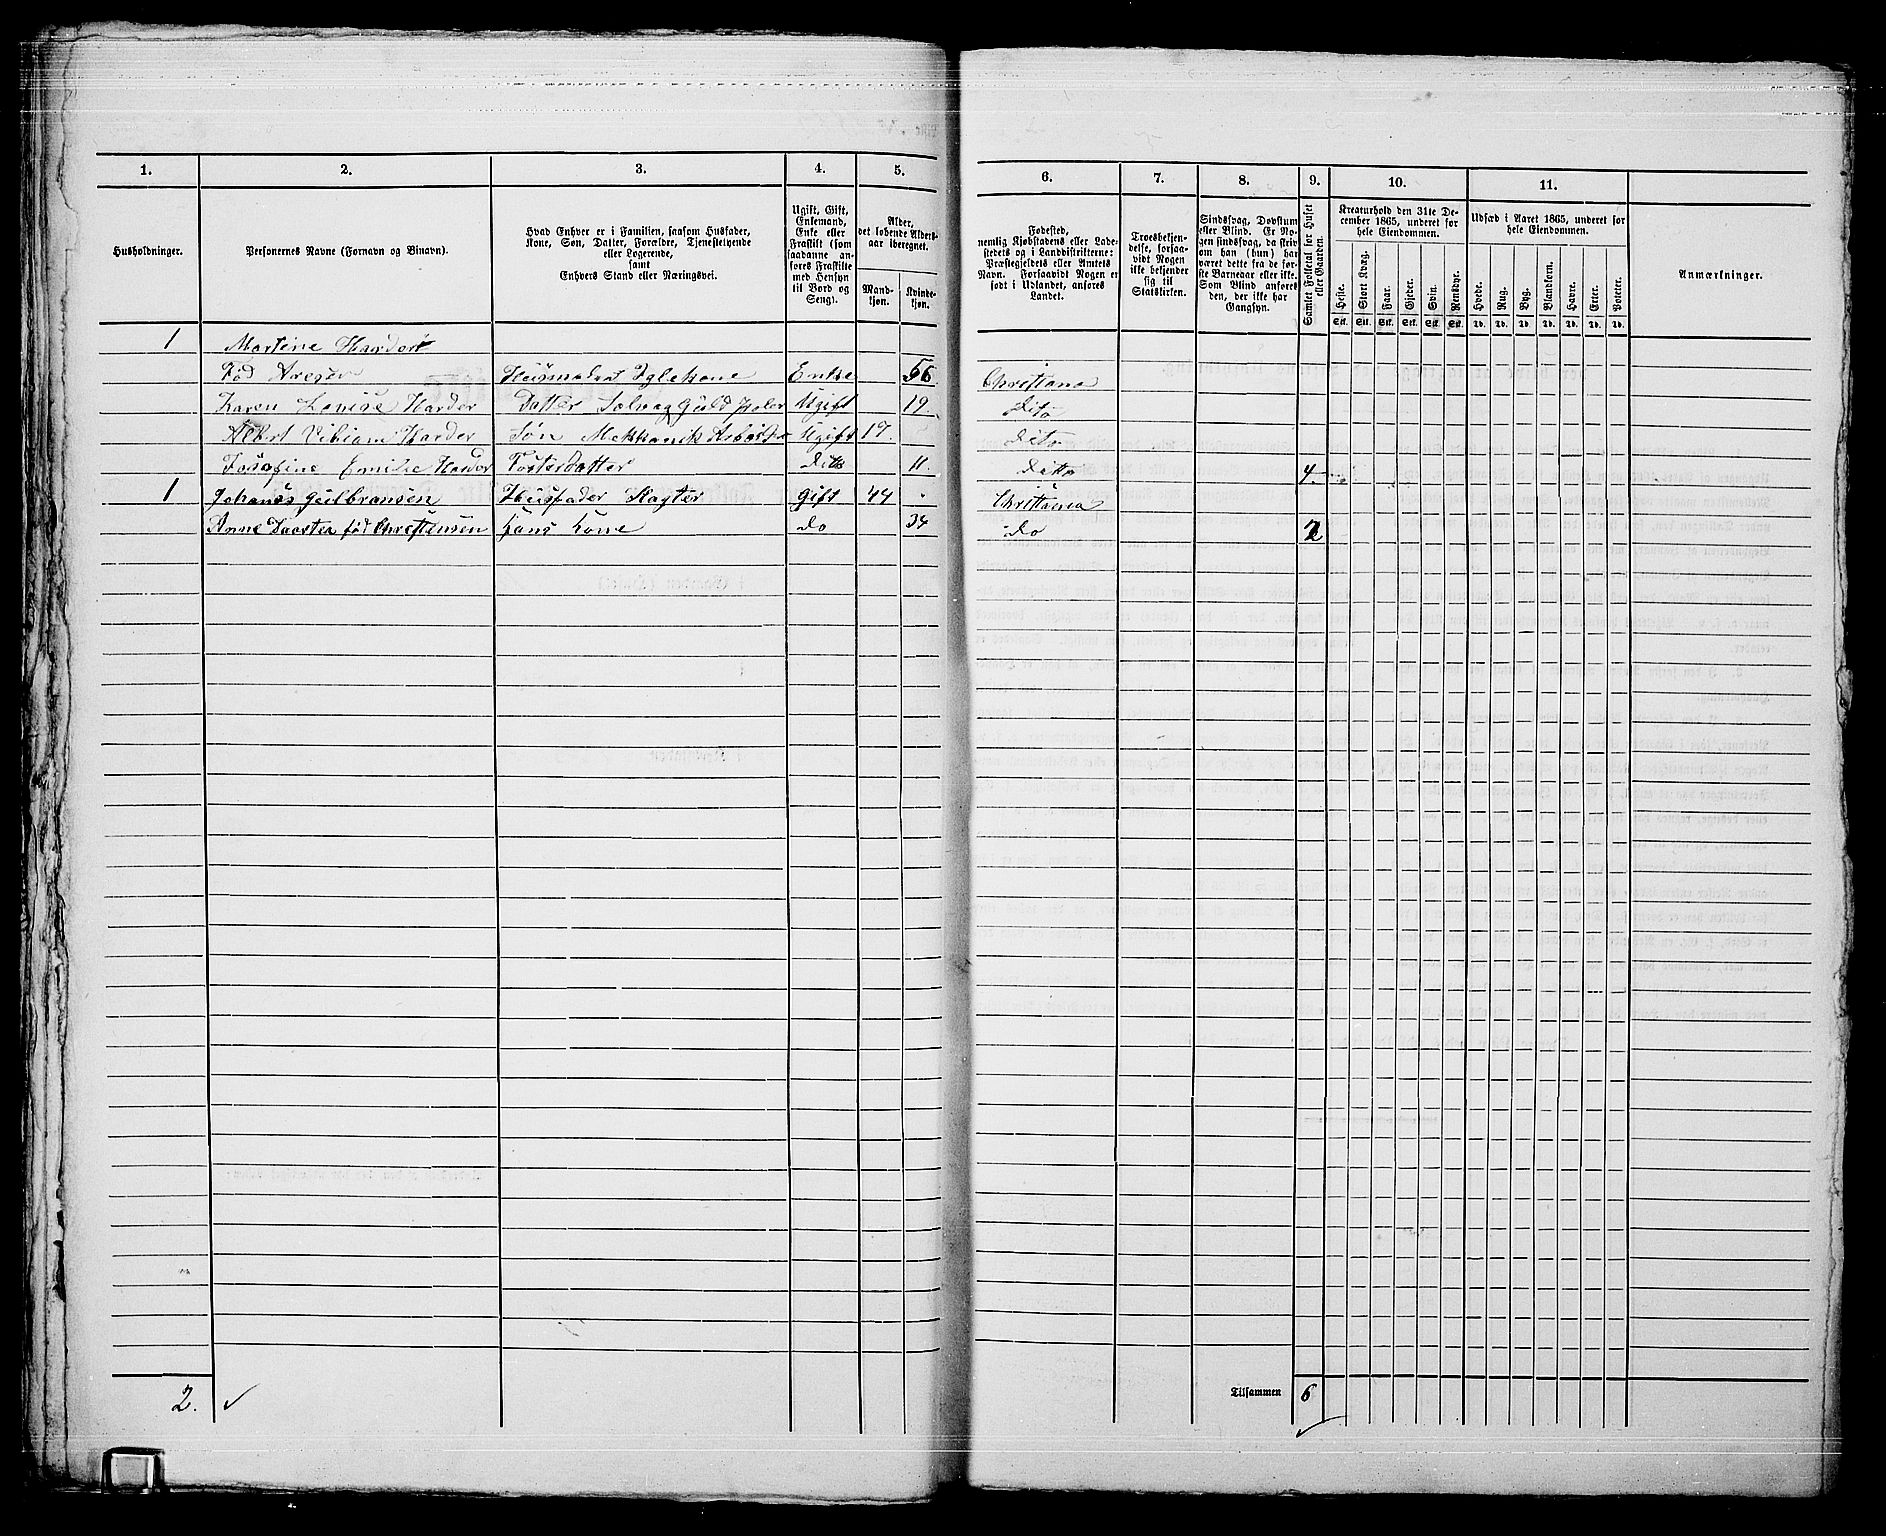 1. 2. 3. 4. 5. 6. 7. 8. 9. 10. 11.
Husholdninger.
Personernes Navne (Fornavn og Binavn).
Hvad Enhver er i Familien, saasom Husfader,
Kone, Søn, Datter, Forældre, Tjenestetyende
eller Logerende,
samt
Enhvers Stand eller Næringsvei.
Ugift, Gift,
Enkemand,
Enke eller
Fraskilt (som
saadanne an-
føres Fraskilte
med Hensyn
til Bord og
Seng).
Alder,
det løbende Alders-
aar iberegnet.
Mand-
kjøn.
Kvinde-
kjøn.
Fødested,
nemlig Kjøbstadens eller Lade-
stedets og i Landdistrikterne:
Præstegjeldets eller Amtets
Navn. Forsaavidt Nogen er
født i Udlandet, anføres
Landet.
Troesbekjen-
delse, forsaa-
vidt Nogen
ikke bekjender
sig til
Statskirken.
Sindssvag, Døvstum
eller Blind. Er No-
gen sindssvag, da skriv
om han (hun) har
været dette fra de før-
ste Barneaar eller ikke.
Som Blind anføres
den, der ikke har
Gangsyn.
Samlet Folketal for Huset
eller Gaarden.
Kreaturhold den 31te De-
cember 1865, underet for
hele Eiendommen.
Heste. Stort Kvæg. Faar. Gjeder. Svin. Rensdyr.
Stk. Stk. Stk. Stk. Stk. Stk.
Udsæd i Aaret 1865, underet for
hele Eiendommen.
Hvede. Rug. Byg. Blandkorn. Havre. Erter. Poteter.
Td. Td. Td. Td. Td. Td. Td.
Anmærkninger.
1 Martine Harder
Fød Enke 56 Christiana
Karen Louise Harder Datter Ugift 19. Dito
Albert Harder Søn Ugift 17. Dito
Josefine Emilie Harder Fosterdatter Ditto 11. Ditto 4
1 Johanes Gulbransen Husfader Slagter Gift 44 Christiania
Anne fød Christensen Hans Kone Do 34 Do 2
2. Tilsammen 6